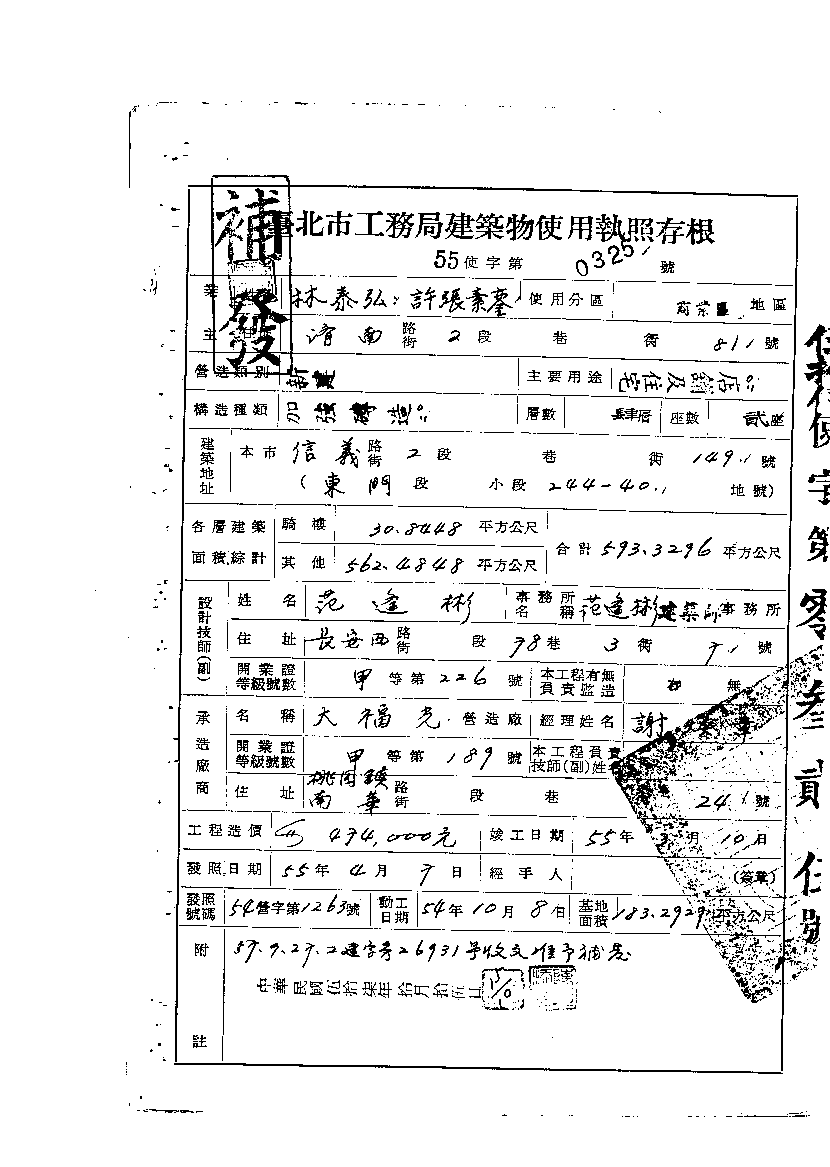 補發
臺北市工務局建築物使用執照存根
55使字第0325號
業 林泰弘 許張素 使用分區 商業區 地區
主 濟南 路街 2 段 巷 衖 811 號
營造類別 新建 主要用途 店舖及住宅
構造種類 加強磚造 層數 肆層 座數 貳座
建築地址 本市 信義 路街 2 段 巷 衖 149.1 號
(東門 段 小段 244-40.1 地號)
各層建築面積綜計 騎樓 30.8448 平方公尺 合計 593.3296 平方公尺
其他 562.4848 平方公尺
設計技師(副) 姓名 范逢彬 事務所名稱 范逢彬建築師事務所
住址 長安西 路街 段 78 巷 3 衖 號
開業證等級號數 甲 等第 226 號 本工程有無負責監造 無
承造廠商 名稱 大福光 營造廠 經理姓名 謝
開業證等級號數 甲 等第 189 號 本工程負責技師(副)姓名
住址 桃園鎮南華 路街 段 巷 241 號
工程造價 474,000元 竣工日期 55年 月 10日
發照日期 55年4月7日 經手人 (簽章)
發照號碼 54營字第1263號 動工日期 54年10月8日 基地面積 183.2929 平方公尺
附註 57.9.27.2建字第26931号收文准予補發
中華民國伍拾柒年拾月拾伍日
使字第零叁貳 號